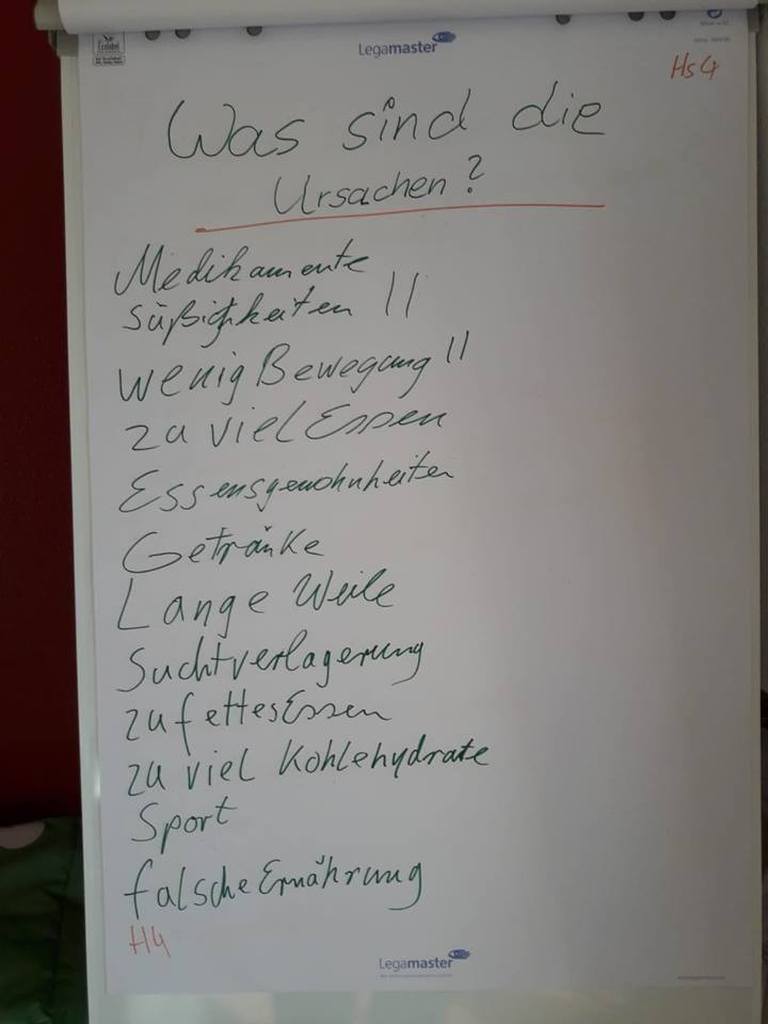 Legamaster
Hs 4
Was sind die
Ursachen?
Medikamente
Süßigkeiten II
wenig Bewegung II
zu viel Essen
Essensgewohnheiten
Getränke
Lange Weile
Suchtverlagerung
zu fettes Essen
zu viel Kohlehydrate
Sport
falsche Ernährung
H4
Legamaster